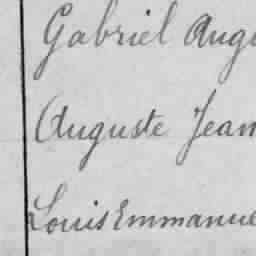 Gabriel Aug
Auguste Jean
Louis Emmanue